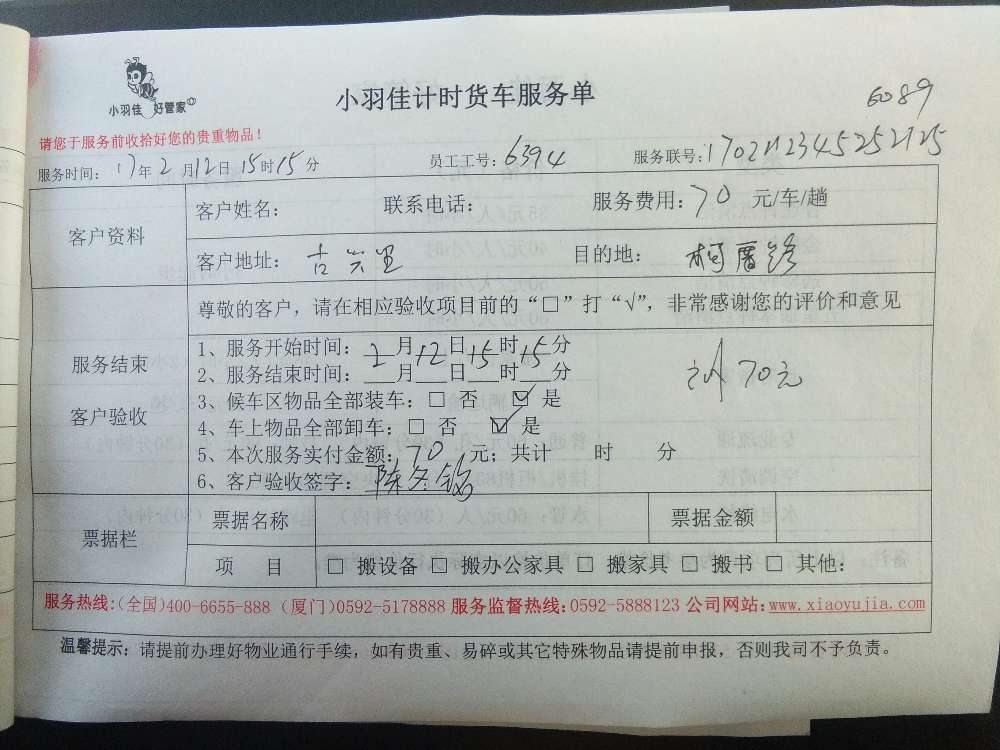 小羽佳 好管家
小羽佳计时货车服务单
6089
请您于服务前收拾好您的贵重物品！
服务时间：17年2月12日15时15分 员工工号：6394 服务联号：
客户资料
客户姓名： 联系电话： 服务费用：70 元/车/趟
客户地址：吉兴里 目的地：柯厝路
尊敬的客户，请在相应验收项目前的“□”打“√”，非常感谢您的评价和意见
服务结束
客户验收
1、服务开始时间：2月12日15时15分
2、服务结束时间：___月___日___时___分
70元
3、候车区物品全部装车：□ 否 ☑ 是
4、车上物品全部卸车：□ 否 ☑ 是
5、本次服务实付金额：70 元；共计 时 分
6、客户验收签字：陈
票据栏
票据名称 票据金额
项 目 □ 搬设备 □ 搬办公家具 □ 搬家具 □ 搬书 □ 其他：
服务热线：(全国)400-6655-888 (厦门)0592-5178888 服务监督热线：0592-5888123 公司网站：www.xiaoyujia.com
温馨提示：请提前办理好物业通行手续，如有贵重、易碎或其它特殊物品请提前申报，否则我司不予负责。